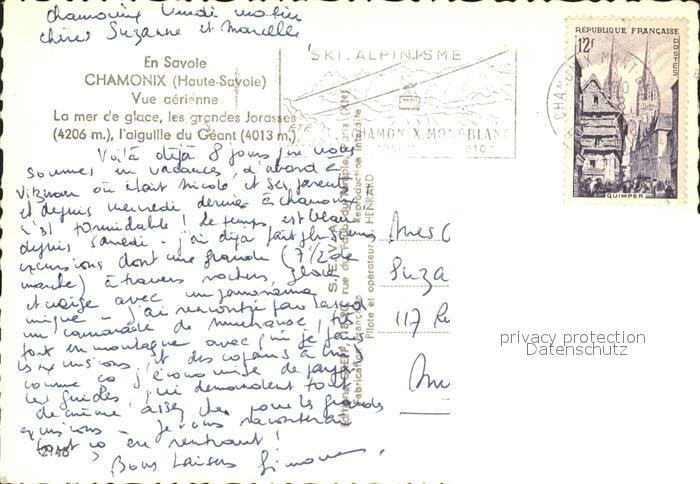 Chamonix lundi matin
chères Suzanne et Marcelle
En Savoie
CHAMONIX (Haute-Savoie)
Vue aérienne
La mer de glace, les grandes Jorasses
(4206 m.), l'aiguille du Géant (4013 m.)
Voilà déjà 8 jours que nous
sommes en vacances, d'abord à
où était Nicole et ses parents
et depuis mercredi dernier à chamonix
c'est formidable! le temps est beau
depuis samedi - j'ai déjà fait plusieurs
excursions dont une grande (7½ de
marche) à travers rochers, glace
et neige avec un panorama
unique - j'ai rencontré par hasard
un camarade de mulhouse, très
fort en montagne avec qui je fais
les excursions et des copains à lui
comme ça j'économise de payer
les guides, qui demandent tout
de même assez cher pour les grandes
excursions - je vous raconterai
tout ça en rentrant!
Bons baisers Simone
2146
SKI. ALPINISME
ETE
CHAMONIX. MONT BLANC
CHAMONIX MONT B
REPUBLIQUE FRANÇAISE
12f
POSTES
QUIMPER
Fabrication Française
Reproduction interdite
Pilote et opérateur : HENRARD
Mes
Suza
117 Ru
Mu
privacy protection
Datenschutz